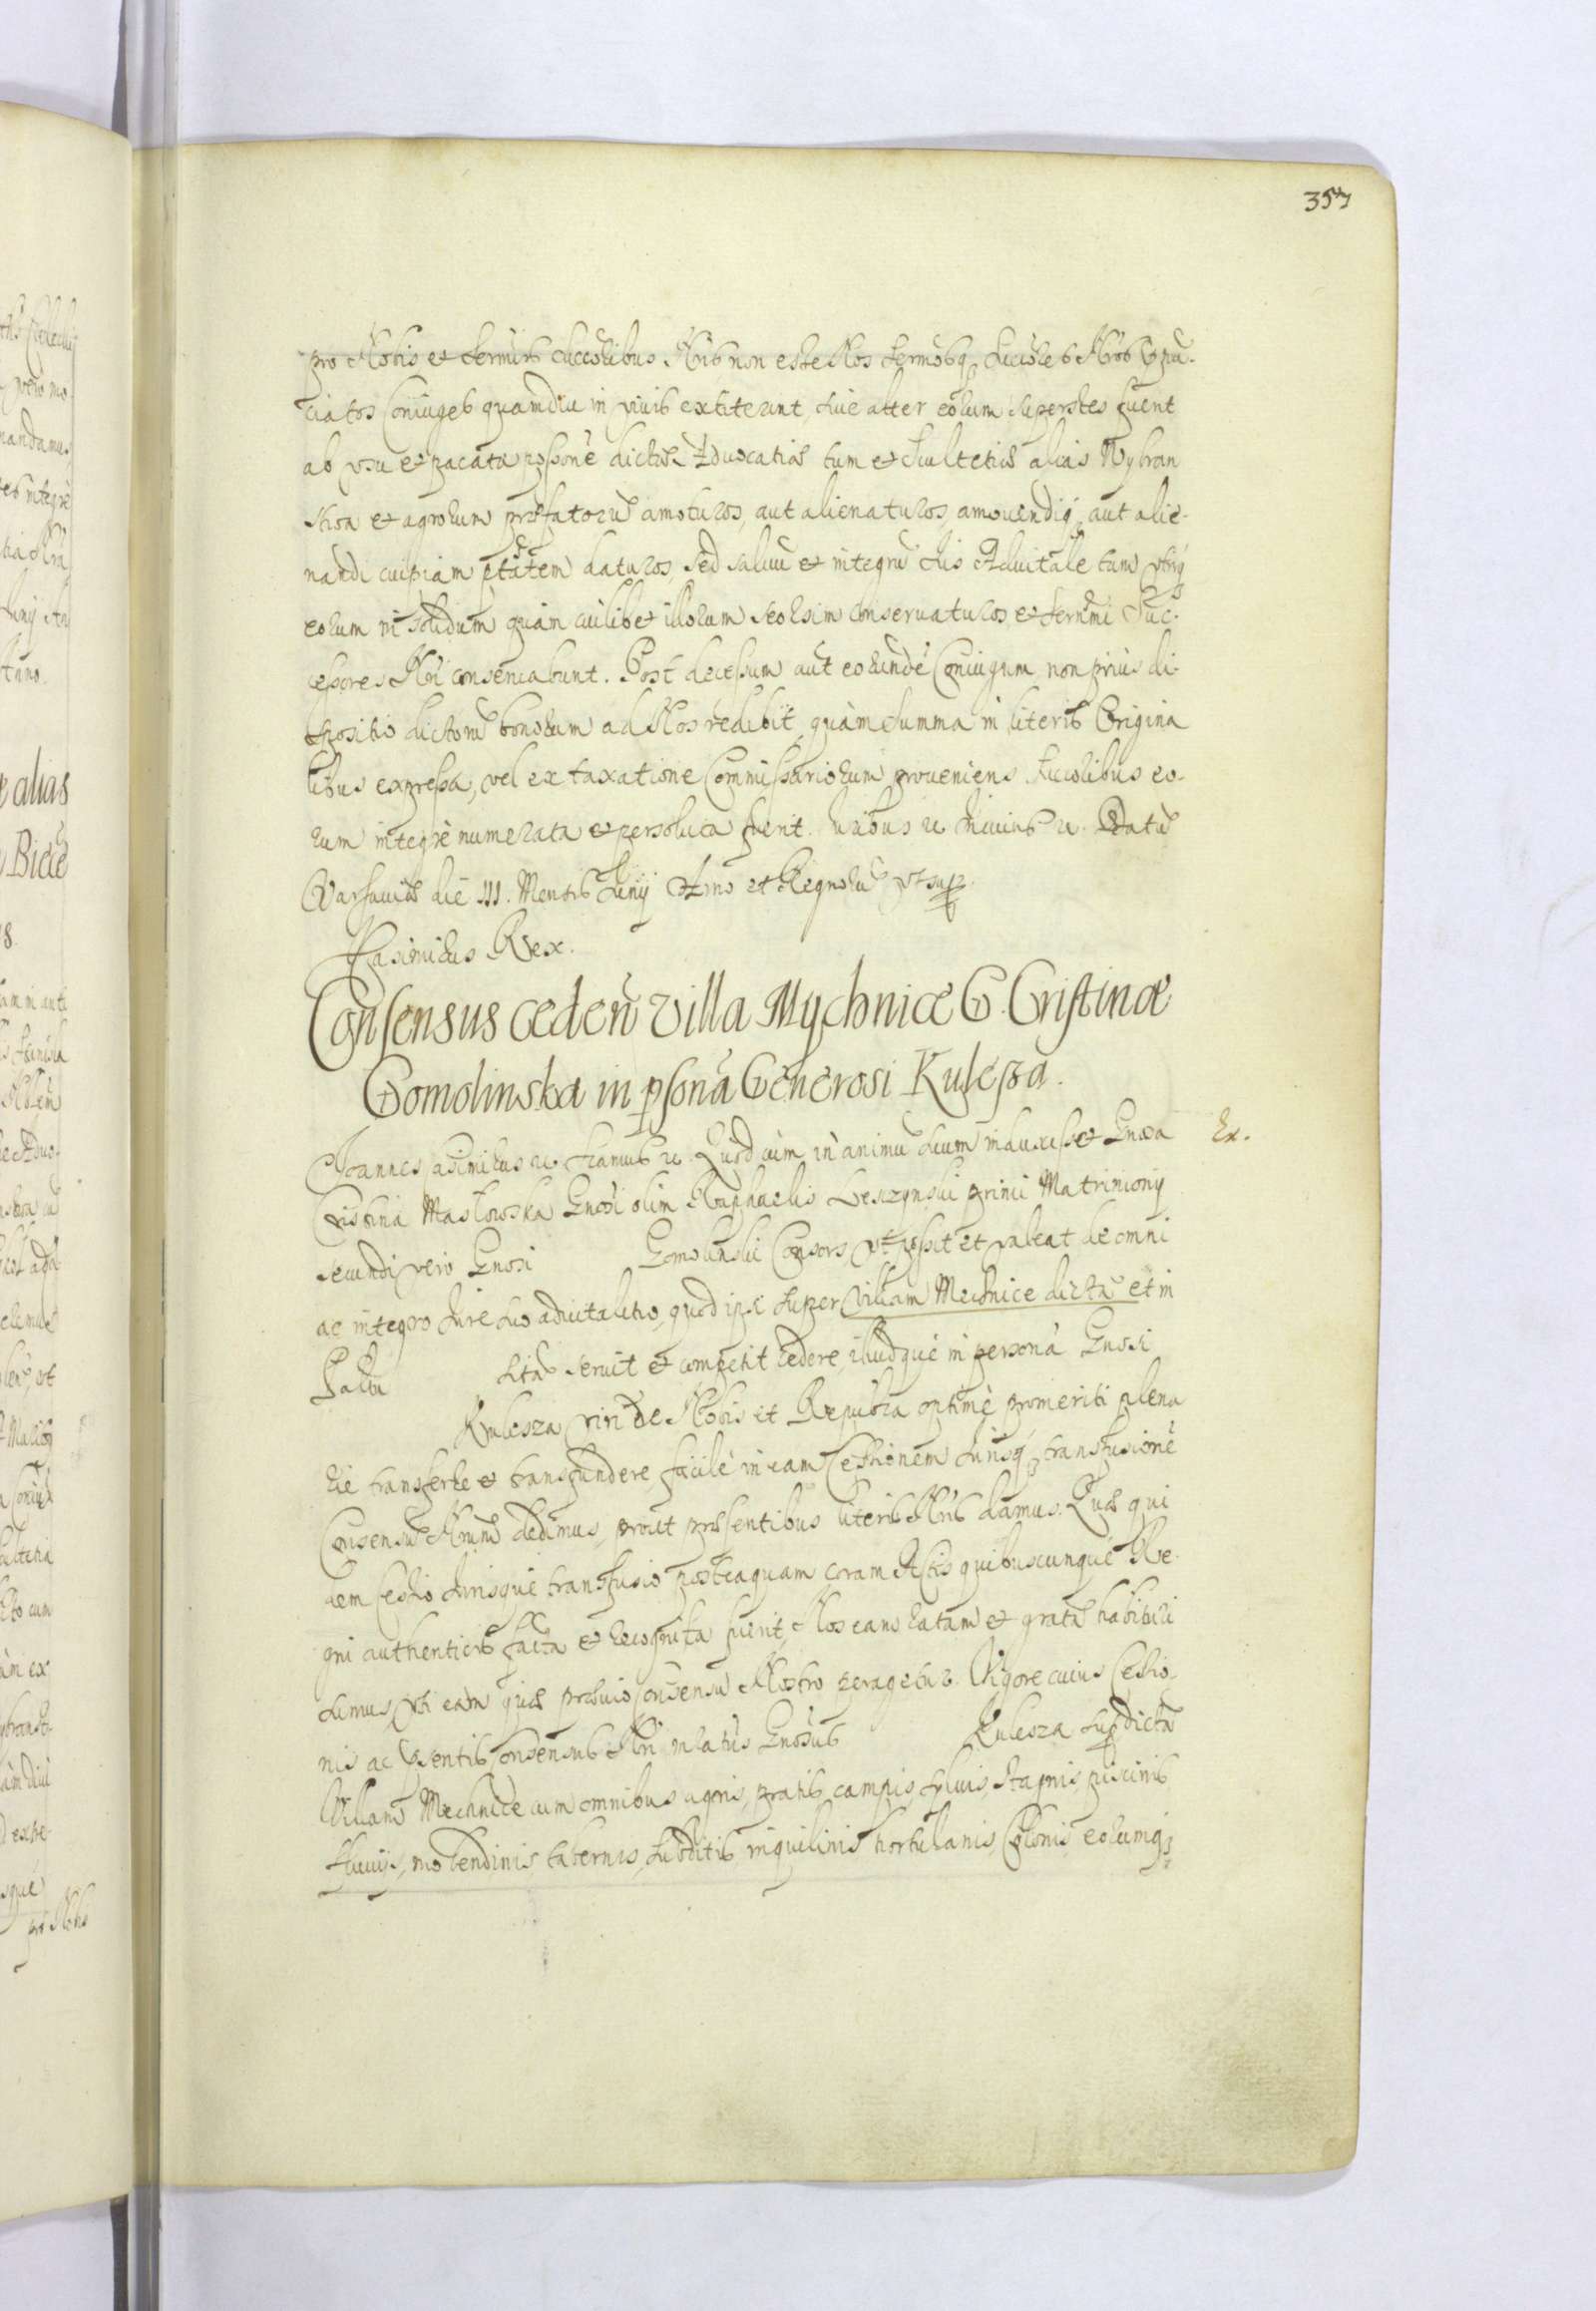 357
pro Nobis et Sermis Succoribus Nris non esse Nos Sermosq Succores Nros Enũ-
ciatos Coniuges quamdiu in viuis extiterint, siue alter eorum superstes fuerit
ab vsu et pacata possone dictæ Aduocatiæ tum et Scultetiæ alias Wybran
stwa et agrorum præfatorũ amoturos, aut alienaturos, amouendiq aut alie-
nandi cuipiam ptatem daturos, Sed saluũ et integrũ Ius Aduitale tam vtriq
eorum in solidum quàm cuilibet illorum seorsim conseruaturos et Sermi Suc-
cessores Nri conseruabunt. Post decessum aut eorundẽ Coniugum non prius di-
spositio dictorũ bonorum ad Nos redibit, quàm Summa in literis Origina
libus expressa, vel ex taxatione Commissariorum proueniens Succoribus eo-
rum integrè numerata et persoluta fuerit. Iuribus Datũ
Varsauiæ die III. Mensis Iunij Anno et Regnorũ vt supra
Casimirus Rex.
Consensus ceden Villa Mychnice G. Cristinæ
Gomolinska in psonã Generosi Kulesza.
Ex.
Ioannes Casimirus Quod cùm in animũ suum induxisset Gnosa
Cristina Masłowska Gnosi olim Raphaelis Leszczynski primi Matrimonij
secundi vero Gnosi Gomolinski Consors vt possit et valeat de omni
ac integro Iure suo aduitalitio, quod ipsi super Villam Mechnice dictã et in
Palttu sitã seruit et competit cedere, illudque in personã Gnosi
Kulesza viri de Nobis et Republica optimè promeriti plena
rie transferre et transfundere, facilè in eam Cessionem Iurisq transfusionẽ
Consensũ Nrum dedimus, prout præsentibus literis Nris damus. Quæ qui
dem Cessio Iurisque transfusio posteaquam coram Actis quibuscunque Re-
gni authenticis facta et recognita fuerit, Nos eam ratam et gratã habituri
sumus, vti eam quæ præuio Consensu Nostro peragetur. Vigore cuius Cessio-
nis ac præsentis Consensus Nri Gnosus Kulesza supradictã
Villam Mechnice cum omnibus agris, pratis, campis, syluis, stagnis, piscinis
fluuijs, molendinis, tabernis, subditis inquilinis hortulanis, Colonis eorumq